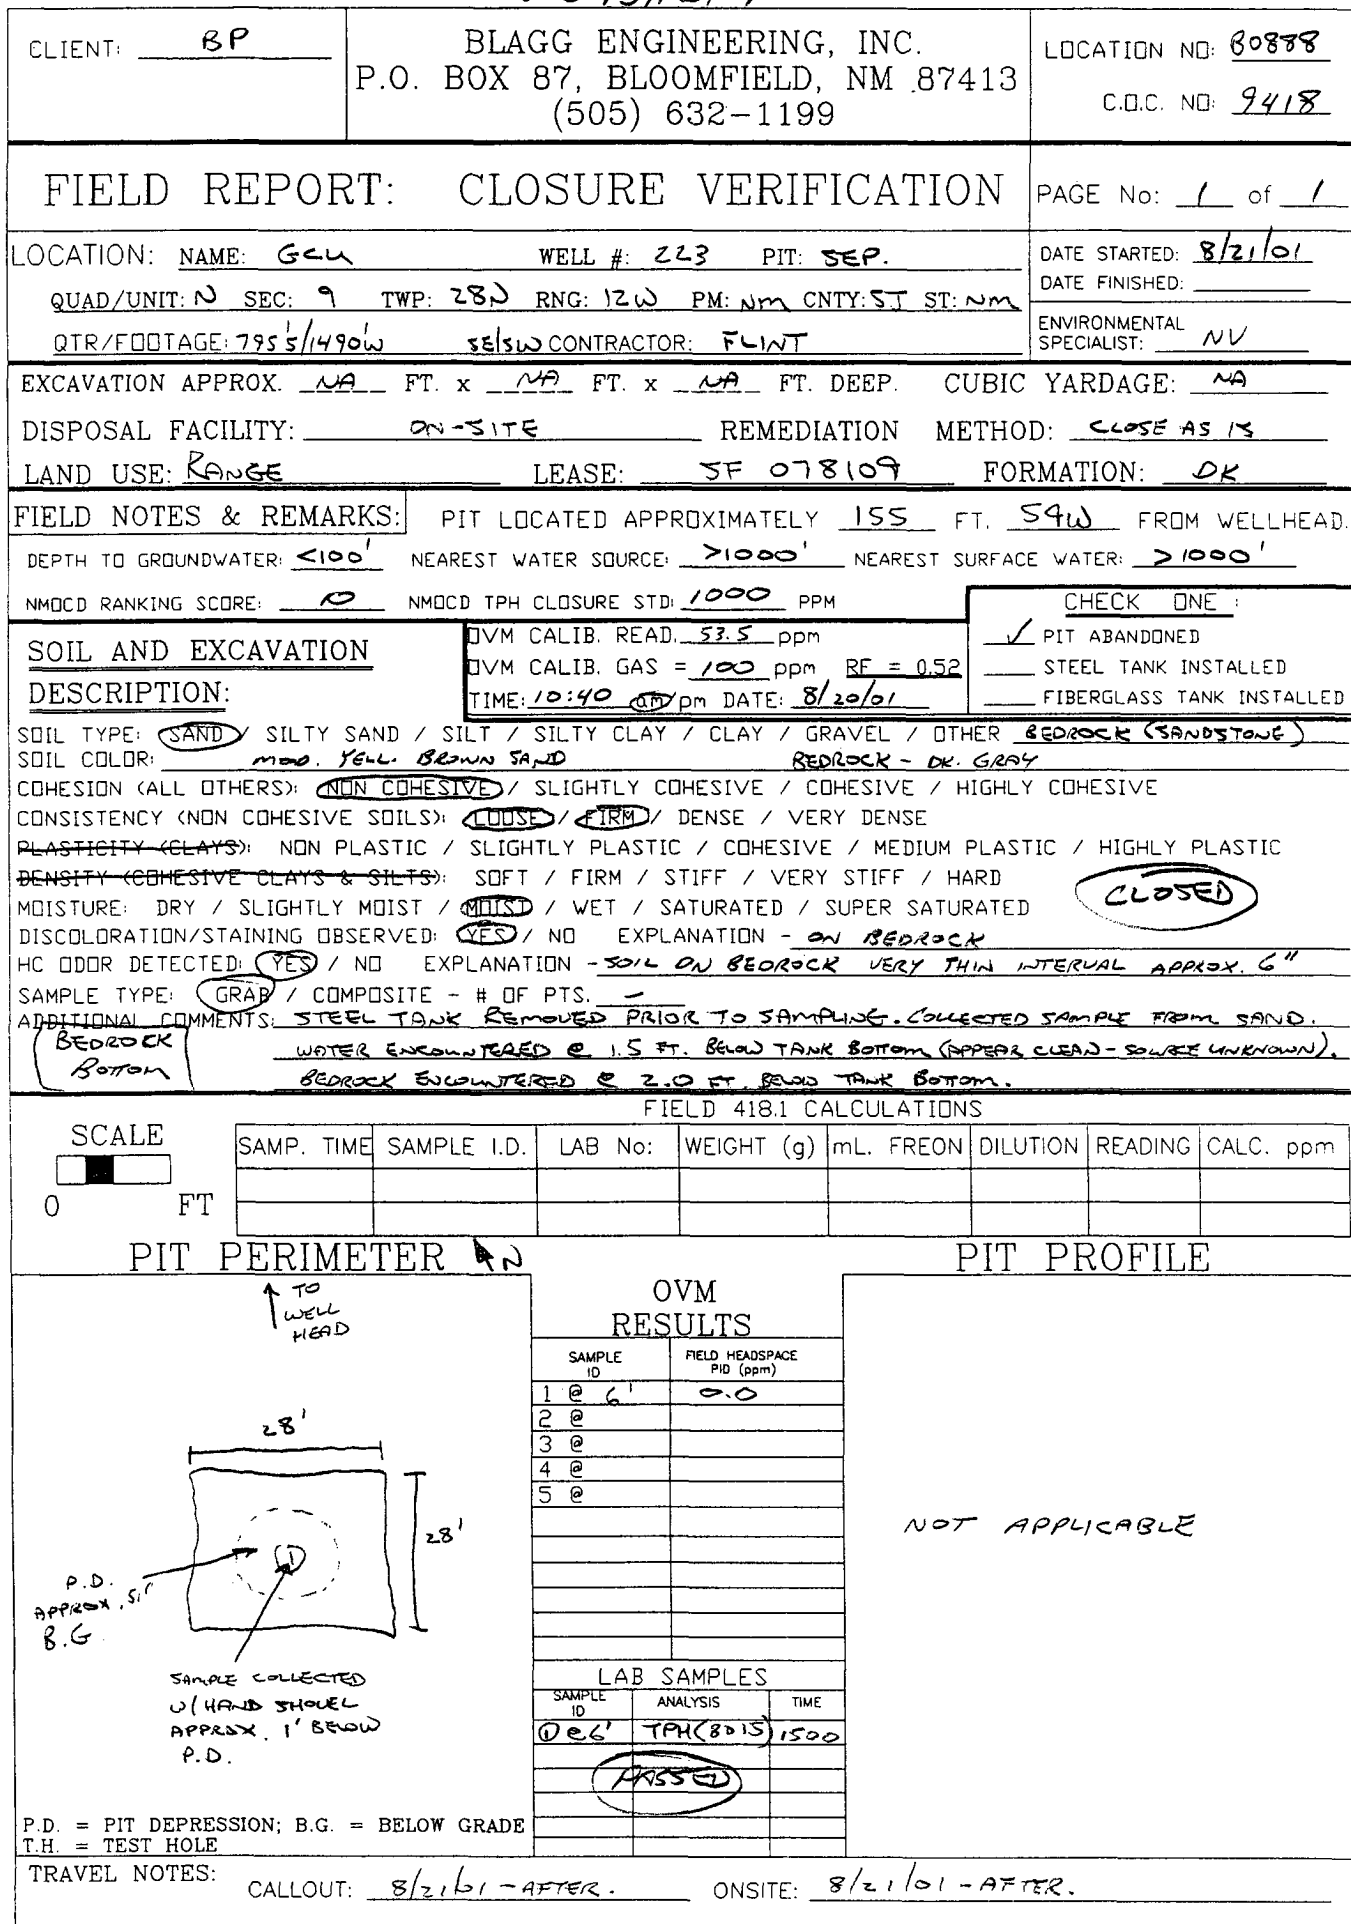 CLIENT: BP
BLAGG ENGINEERING, INC.
P.O. BOX 87, BLOOMFIELD, NM 87413
(505) 632-1199
LOCATION NO: B0888
C.O.C. NO: 9418
FIELD REPORT: CLOSURE VERIFICATION
PAGE No: 1 of 1
LOCATION: NAME: GCU WELL #: 223 PIT: SEP.
QUAD/UNIT: N SEC: 9 TWP: 28N RNG: 12W PM: NM CNTY: SJ ST: NM
QTR/FOOTAGE: 795'S/1490'W SE/SW CONTRACTOR: FLINT
DATE STARTED: 8/21/01
DATE FINISHED:
ENVIRONMENTAL
SPECIALIST: NV
EXCAVATION APPROX. NA FT. x NA FT. x NA FT. DEEP. CUBIC YARDAGE: NA
DISPOSAL FACILITY: ON-SITE REMEDIATION METHOD: CLOSE AS IS
LAND USE: RANGE LEASE: SF 078109 FORMATION: DK
FIELD NOTES & REMARKS: PIT LOCATED APPROXIMATELY 155 FT. S4W FROM WELLHEAD.
DEPTH TO GROUNDWATER: <100' NEAREST WATER SOURCE: >1000' NEAREST SURFACE WATER: >1000'
NMOCD RANKING SCORE: 10 NMOCD TPH CLOSURE STD: 1000 PPM
CHECK ONE :
✓ PIT ABANDONED
STEEL TANK INSTALLED
FIBERGLASS TANK INSTALLED
SOIL AND EXCAVATION
DESCRIPTION:
OVM CALIB. READ. 53.5 ppm
OVM CALIB. GAS = 100 ppm RF = 0.52
TIME: 10:40 am/pm DATE: 8/20/01
SOIL TYPE: SAND / SILTY SAND / SILT / SILTY CLAY / CLAY / GRAVEL / OTHER BEDROCK (SANDSTONE)
SOIL COLOR: MOD. YELL. BROWN SAND BEDROCK - DK. GRAY
COHESION (ALL OTHERS): NON COHESIVE / SLIGHTLY COHESIVE / COHESIVE / HIGHLY COHESIVE
CONSISTENCY (NON COHESIVE SOILS): LOOSE / FIRM / DENSE / VERY DENSE
PLASTICITY (CLAYS): NON PLASTIC / SLIGHTLY PLASTIC / COHESIVE / MEDIUM PLASTIC / HIGHLY PLASTIC
DENSITY (COHESIVE CLAYS & SILTS): SOFT / FIRM / STIFF / VERY STIFF / HARD
CLOSED
MOISTURE: DRY / SLIGHTLY MOIST / MOIST / WET / SATURATED / SUPER SATURATED
DISCOLORATION/STAINING OBSERVED: YES / NO EXPLANATION - ON BEDROCK
HC ODOR DETECTED: YES / NO EXPLANATION - SOIL ON BEDROCK VERY THIN INTERVAL APPROX. 6"
SAMPLE TYPE: GRAB / COMPOSITE - # OF PTS. -
ADDITIONAL COMMENTS: STEEL TANK REMOVED PRIOR TO SAMPLING. COLLECTED SAMPLE FROM SAND.
BEDROCK
BOTTOM
WATER ENCOUNTERED @ 1.5 FT. BELOW TANK BOTTOM (APPEAR CLEAN - SOURCE UNKNOWN).
BEDROCK ENCOUNTERED @ 2.0 FT. BELOW TANK BOTTOM.
FIELD 418.1 CALCULATIONS
SCALE
0 FT
SAMP. TIME SAMPLE I.D. LAB No: WEIGHT (g) mL. FREON DILUTION READING CALC. ppm
PIT PERIMETER N
TO
WELL
HEAD
28'
28'
1
P.D.
APPROX. 5'
B.G
SAMPLE COLLECTED
W/ HAND SHOVEL
APPROX. 1' BELOW
P.D.
P.D. = PIT DEPRESSION; B.G. = BELOW GRADE
T.H. = TEST HOLE
OVM
RESULTS
SAMPLE ID FIELD HEADSPACE PID (ppm)
1 @ 6' 0.0
2 @
3 @
4 @
5 @
LAB SAMPLES
SAMPLE ID ANALYSIS TIME
① @ 6' TPH(8015) 1500
PASSED
PIT PROFILE
NOT APPLICABLE
TRAVEL NOTES: CALLOUT: 8/21/01 - AFTER. ONSITE: 8/21/01 - AFTER.